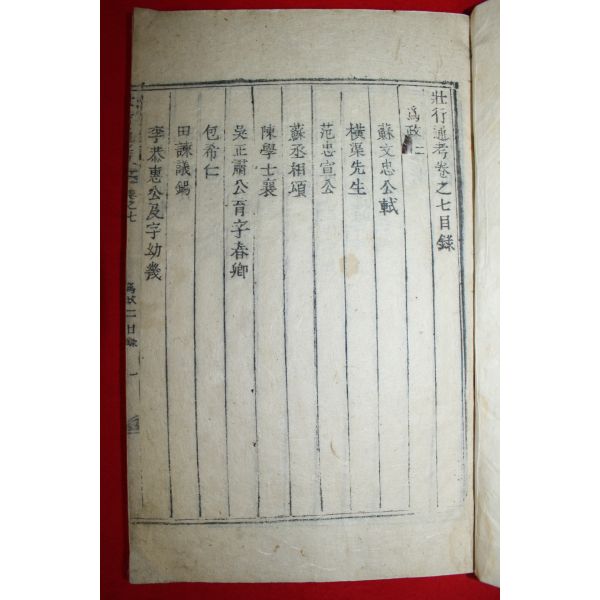 壯行通考卷之七目錄
爲政二
蘇文忠公軾
橫渠先生
范忠宣公
蘇丞相頌
陳學士襄
吳正肅公育字春卿
包希仁
田諫議錫
李恭惠公及字幼幾
卷之七
爲政二目錄 一